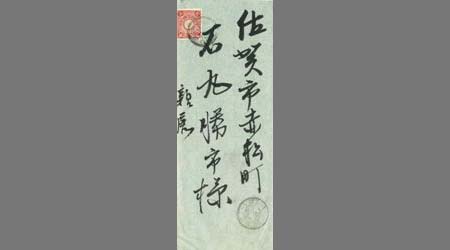 佐賀市赤松町
石丸勝市様
親展